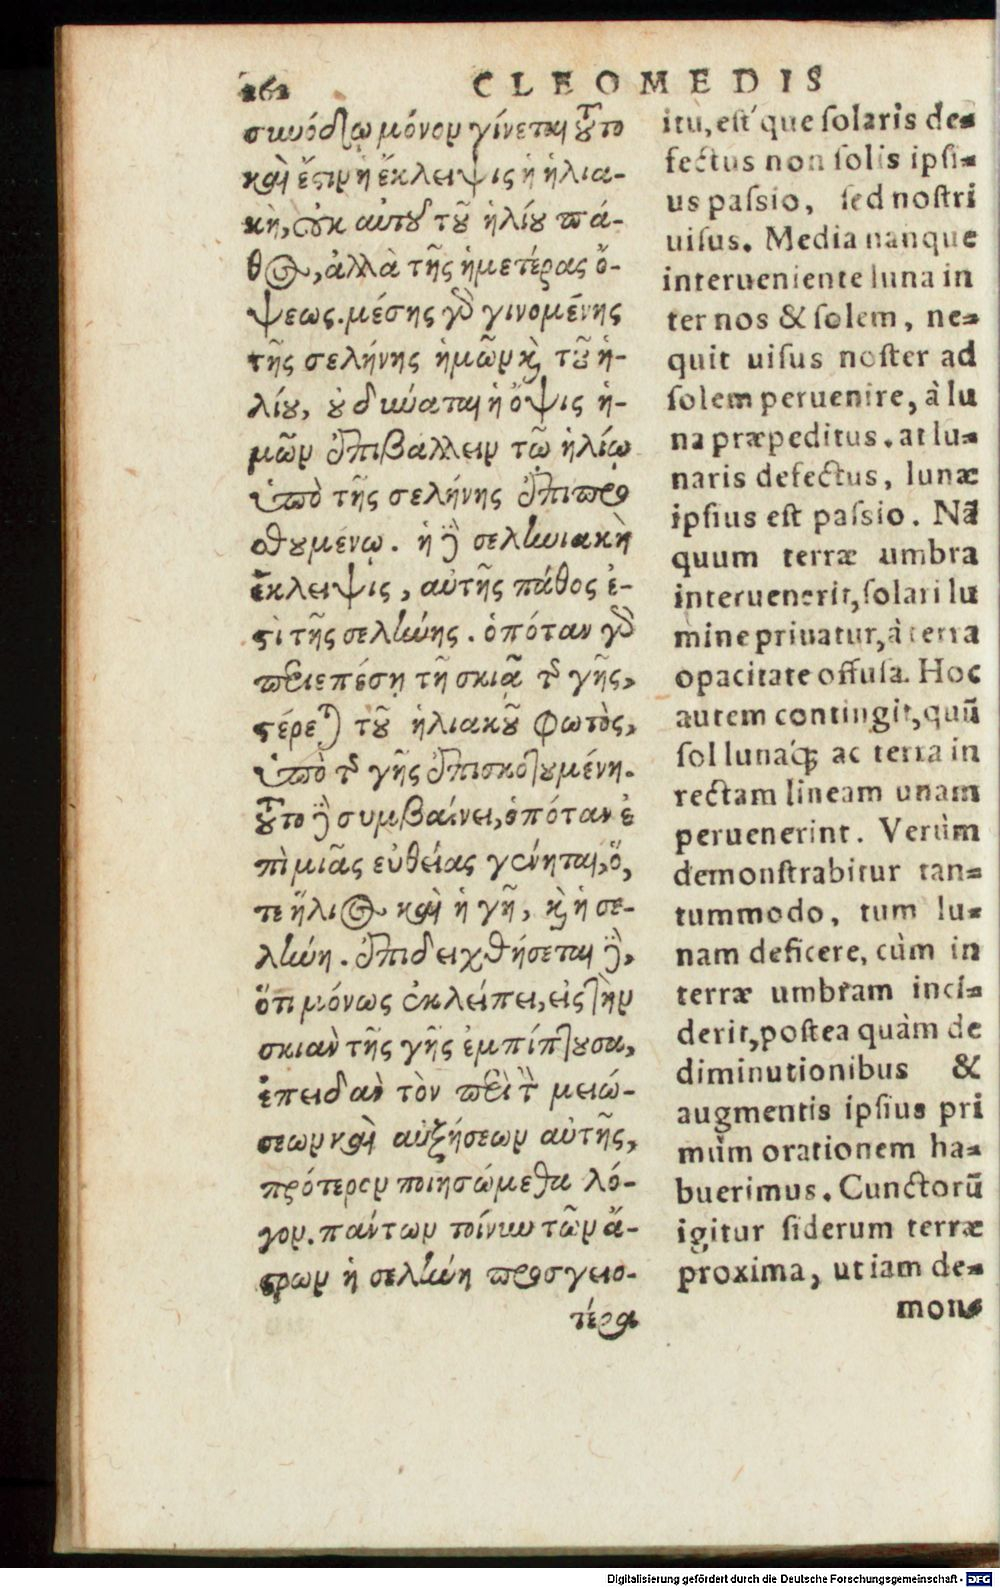 262 CLEOMEDIS
σκυόδῳ μόνον γίνεται τοῦτο
καὶ ἔστιν ἡ ἔκλειψις ἡ ἡλια-
κὴ, οὐκ αὐτοῦ τοῦ ἡλίου πά-
θος, ἀλλὰ τῆς ἡμετέρας ὄ-
ψεως. μέσης γὰρ γινομένης
τῆς σελήνης ἡμῶν καὶ τοῦ ἡ-
λίου, οὐ δύναται ἡ ὄψις ἡ-
μῶν ἐπιβάλλειν τῷ ἡλίῳ
ὑπὸ τῆς σελήνης ἐπιπρο
σθουμένῳ. ἡ δὲ σεληνιακὴ
ἔκλειψις, αὐτῆς πάθος ἐ-
στὶ τῆς σελήνης. ὁπόταν γὰρ
περιεπέσῃ τῇ σκιᾷ τῆς γῆς,
στέρεται τοῦ ἡλιακοῦ φωτὸς,
ὑπὸ τῆς γῆς ἐπισκοτουμένη.
τοῦτο δὲ συμβαίνει, ὁπόταν ἐ
πὶ μιᾶς εὐθείας γένηται, ὅ,
τε ἥλιος καὶ ἡ γῆ, καὶ ἡ σε-
λήνη. ἐπιδειχθήσεται δὲ,
ὅτι μόνως ἐκλείπει, εἰς τὴν
σκιὰν τῆς γῆς ἐμπίπτουσα,
ἐπειδὰν τὸν περὶ τῶν μειώ-
σεων καὶ αὐξήσεων αὐτῆς,
πρότερον ποιησώμεθα λό-
γον. πάντων τοίνυν τῶν ἄ-
στρων ἡ σελήνη προσγειο-
τέρα
itu, est que solaris de-
fectus non solis ipsi-
us passio, sed nostri
uisus. Media nanque
interueniente luna in
ter nos & solem, ne-
quit uisus noster ad
solem peruenire, à lu
na præpeditus. at lu-
naris defectus, lunæ
ipsius est passio. Nã
quum terræ umbra
interuenerit, solari lu
mine priuatur, à terra
opacitate offusa. Hoc
autem contingit, quũ
sol lunaq́; ac terra in
rectam lineam unam
peruenerint. Verùm
demonstrabitur tan-
tummodo, tum lu-
nam deficere, cùm in
terræ umbram inci-
derit, postea quàm de
diminutionibus &
augmentis ipsius pri
mùm orationem ha-
buerimus. Cunctorũ
igitur siderum terræ
proxima, ut iam de-
mons
Digitalisierung gefördert durch die Deutsche Forschungsgemeinschaft - DFG